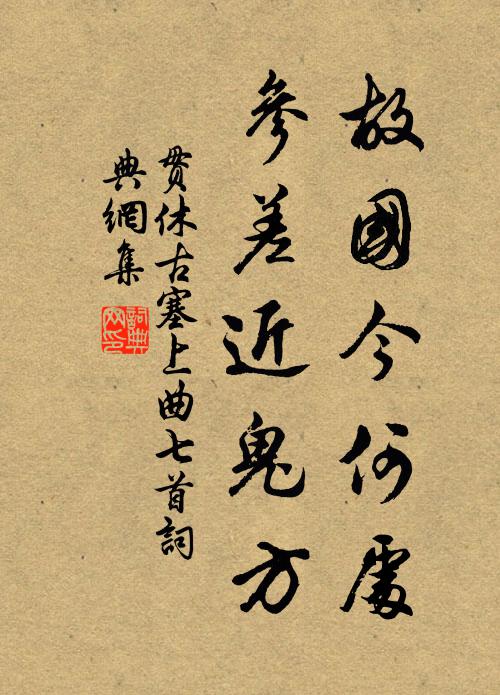 故國今何處
參差近鬼方
貫休古塞上曲七首詞
典網集
詞典網印